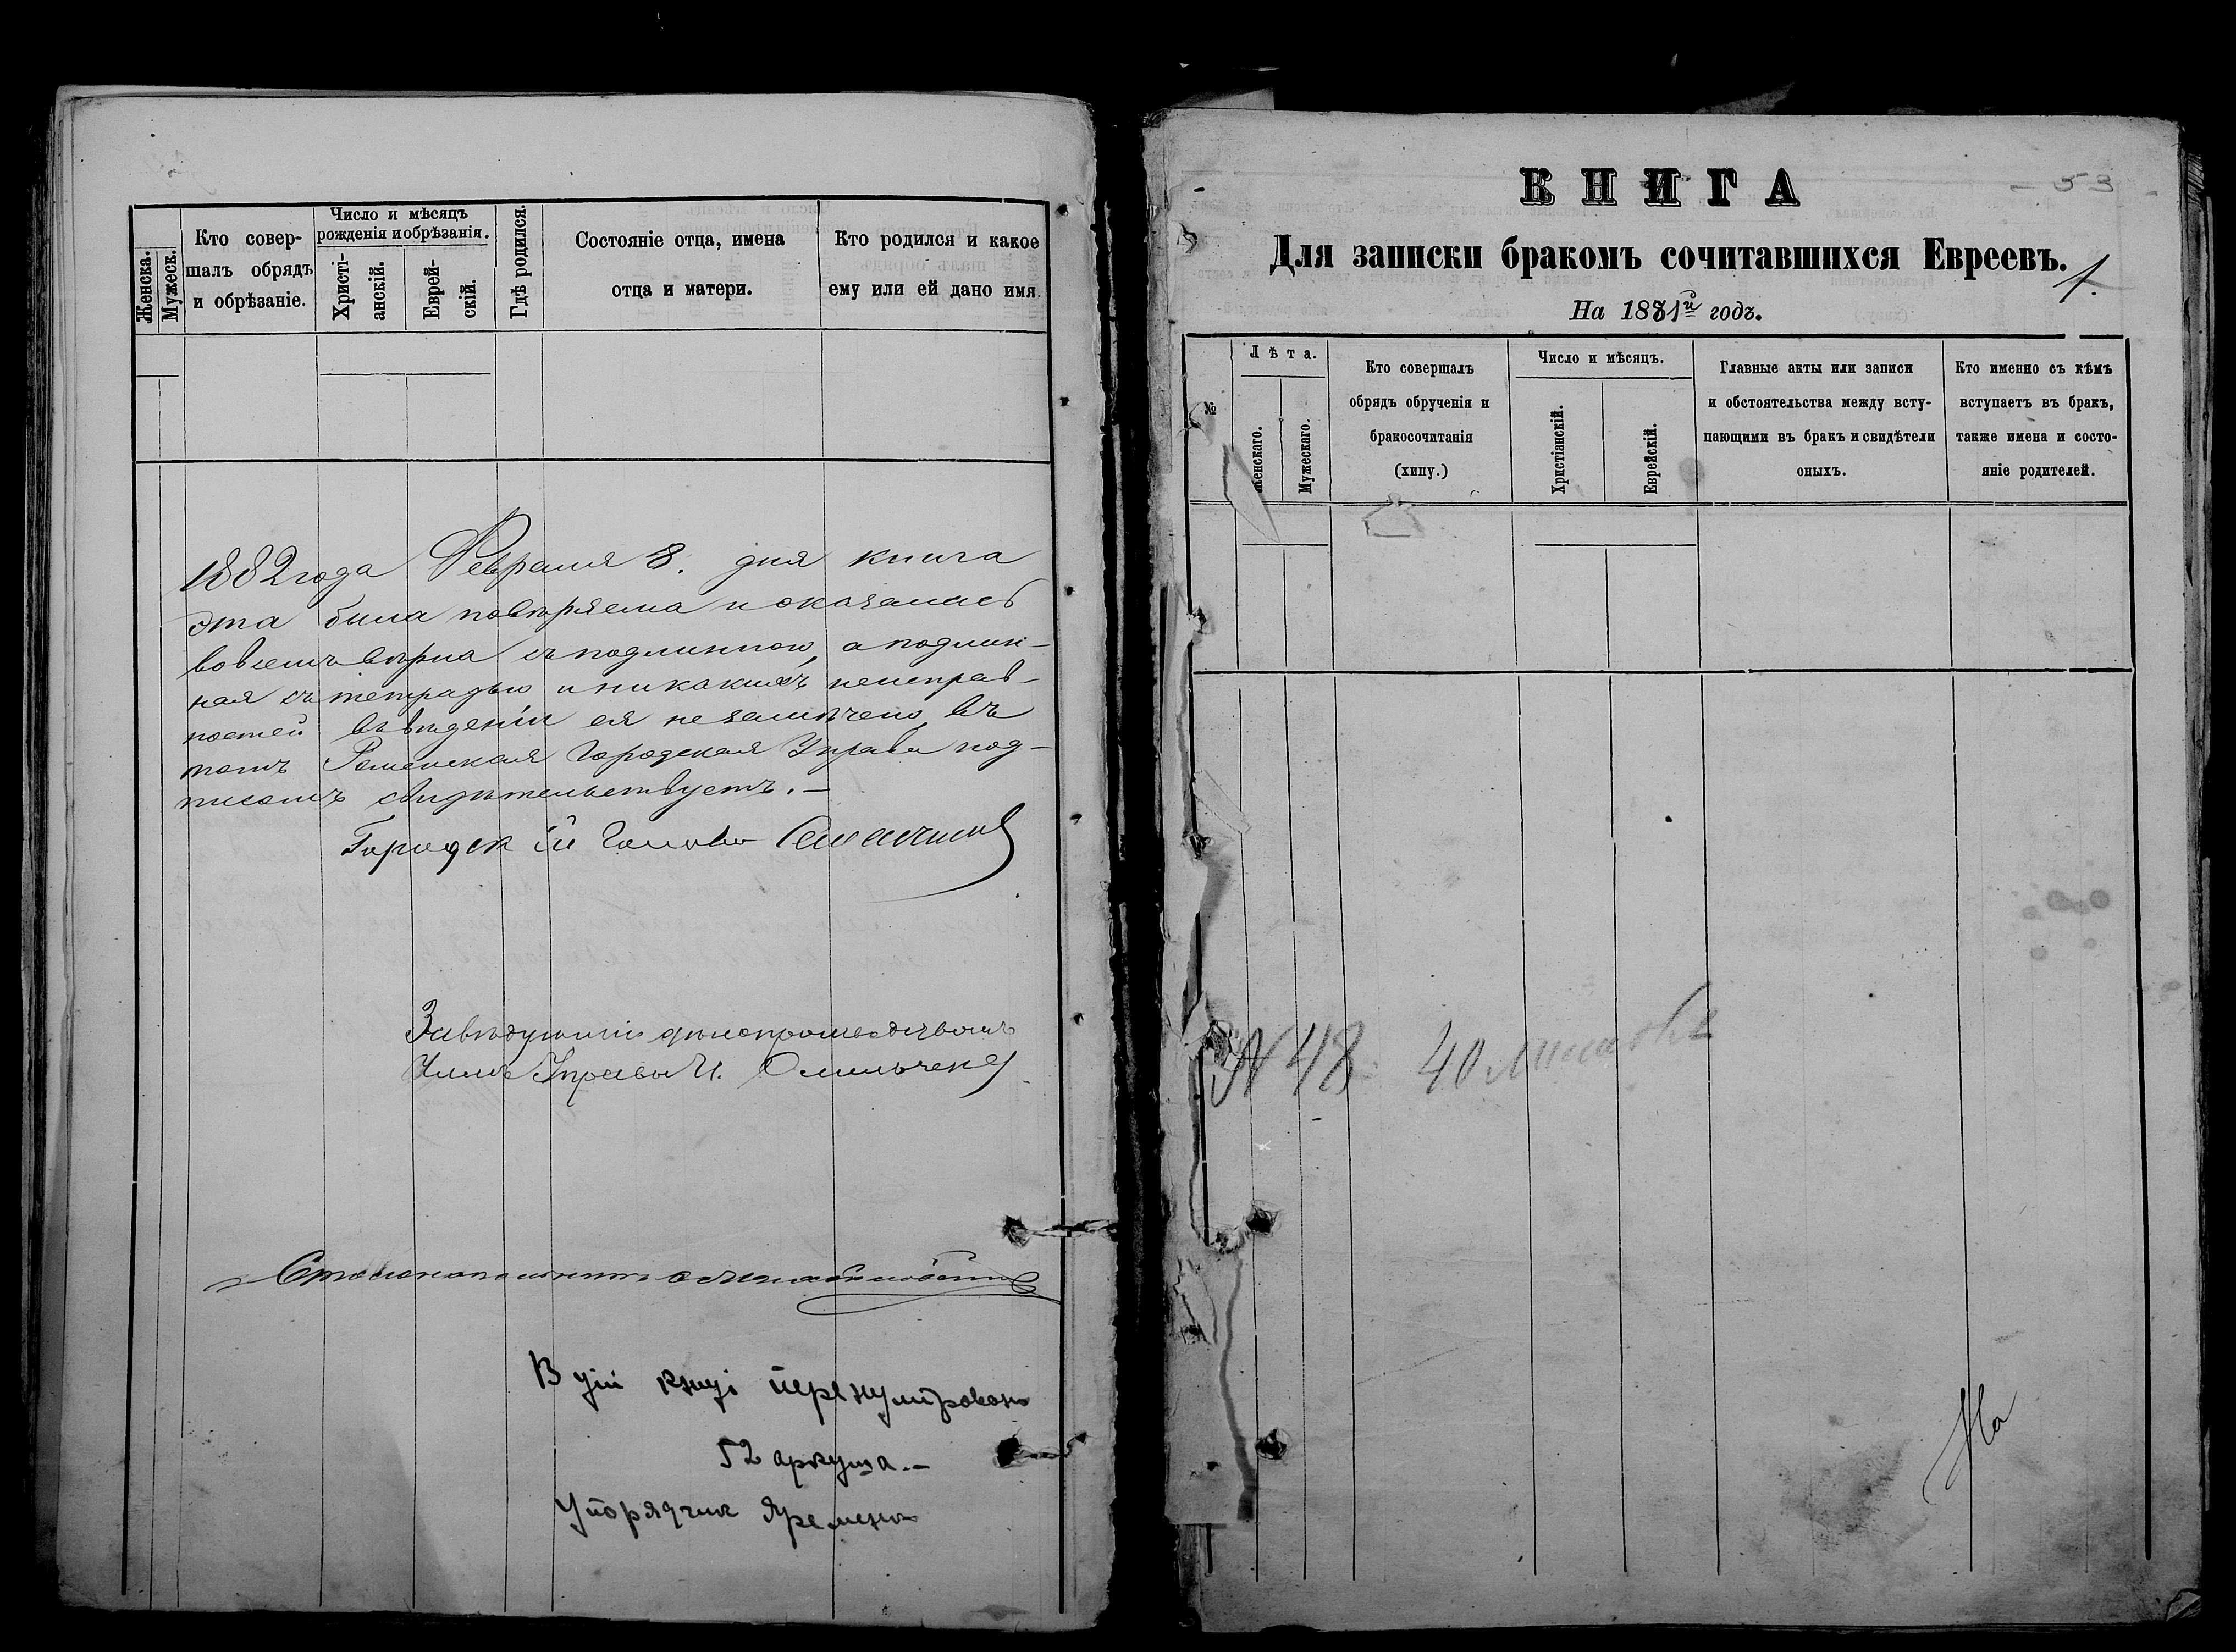 Женска.
Мужеск.
Кто совер-
шалъ обрядъ
и обрѣзаніе.
Число и мѣсяцъ
рожденія и обрѣзанія.
Христі-
анскій.
Еврей-
скій.
Гдѣ родился.
Состояніе отца, имена
отца и матери.
Кто родился и какое
ему или ей дано имя
1882 года Февраля 8. дня книга
эта была повѣряема и оказалась
во всемъ вѣрна съ подлинною, а подлин-
ная съ тетрадью и никакихъ неисправ-
ностей въ веденіи ея не замѣчено, въ
томъ Роменская Городская Управа под-
писомъ свидѣтельствуетъ. —
Городской Голова
Завѣдующій дѣлопроизводствомъ
Членъ Управы И. Омельченко
В цій книзі перенумеровано
52 аркуша. —
Упорядчик Яременко
КНИГА
- 53 -
Для записки бракомъ сочитавшихся Евреевъ.
1.
На 1881й годъ.
№
Лѣта.
Женскаго.
Мужескаго.
Кто совершалъ
обрядъ обрученія и
бракосочитанія
(хипу.)
Число и мѣсяцъ.
Христіанскій.
Еврейскій.
Главные акты или записи
и обстоятельства между всту-
пающими въ бракъ и свидѣтели
оныхъ.
Кто именно съ кѣмъ
вступаетъ въ бракъ,
также имена и состо-
яніе родителей.
N 48. 40 листовъ
На